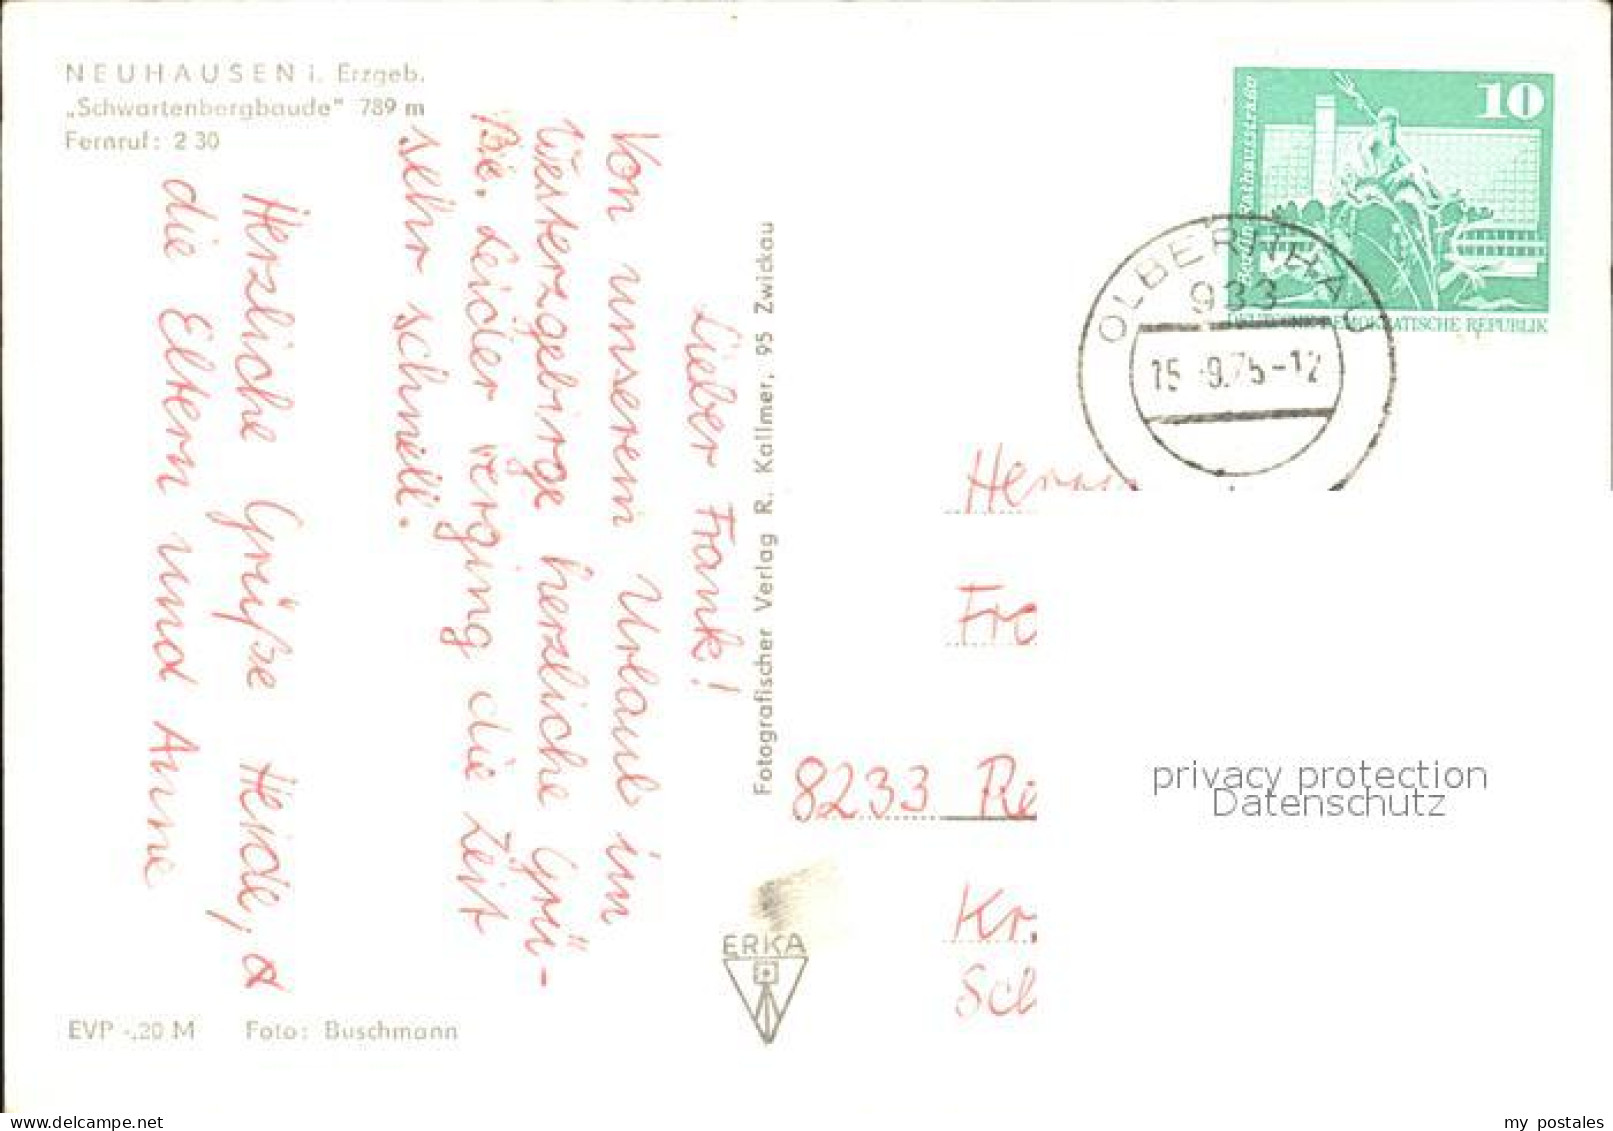 NEUHAUSEN i. Erzgeb.
„Schwartenbergbaude" 789 m
Fernruf: 2 30
Lieber Frank!
Von unserem Urlaub im
Westerzgebirge herzliche Grü-
ße. Leider verging die Zeit
sehr schnell.
Herzliche Grüße Heide, a
die Eltern und Anne
EVP -,20 M Foto: Buschmann
Fotografischer Verlag R. Kallmer, 95 Zwickau
ERKA
10
Berlin-Rathausstraße
DEUTSCHE DEMOKRATISCHE REPUBLIK
OLBERNHAU
933
15.-9.75-12
Herrn
Fra
8233 Re
Kr.
Sch
privacy protection
Datenschutz
delcampe.net
my postales